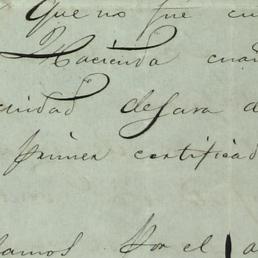 Que no fué cu
Hacienda cuan
cuidad dejara d
primer certificad
amos por el a